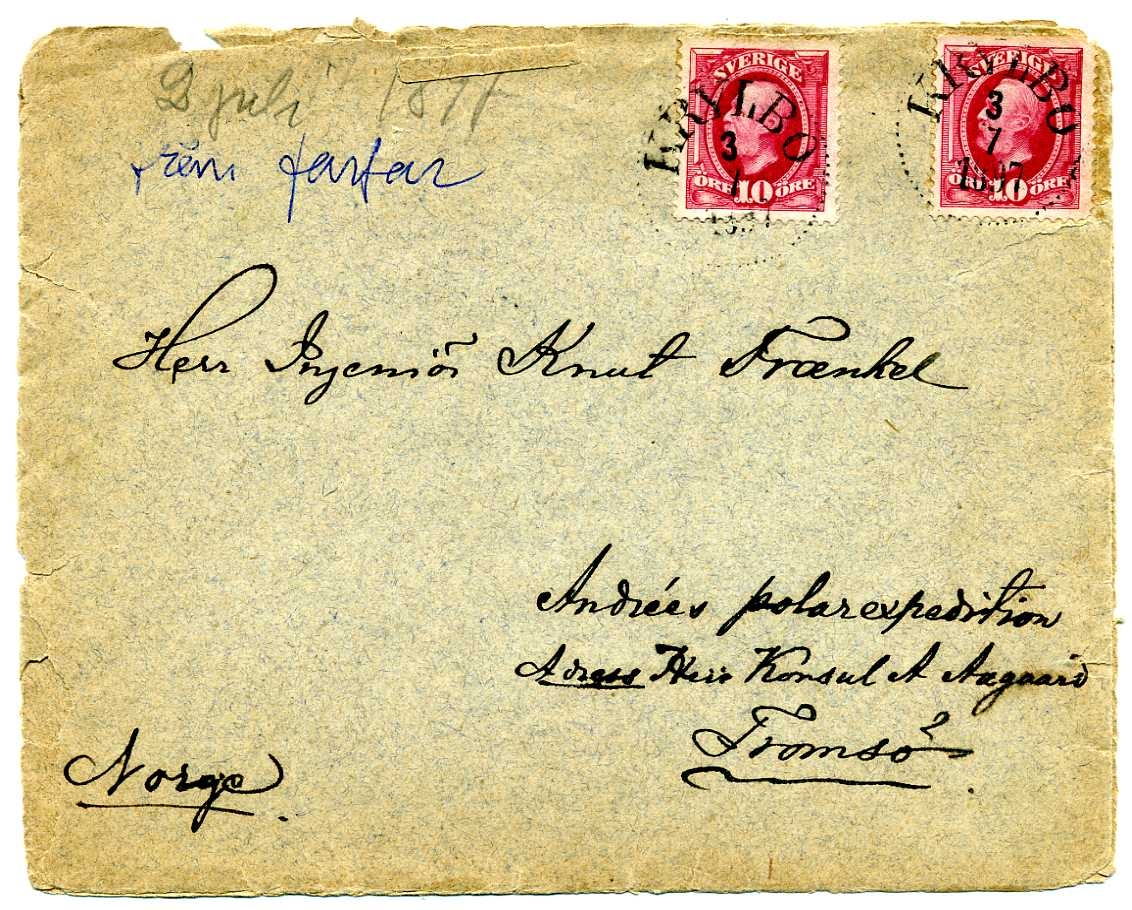 2 juli 1897
från farfar
SVERIGE
KRYLBO
3
7
1897
10
ÖRE ÖRE
SVERIGE
KRYLBO
3
7
1897
10
ÖRE ÖRE
Herr Ingeniör Knut Frænkel
Andrées polarexpedition
Adress Herr Konsul A Aagaard
Tromsö
Norge.